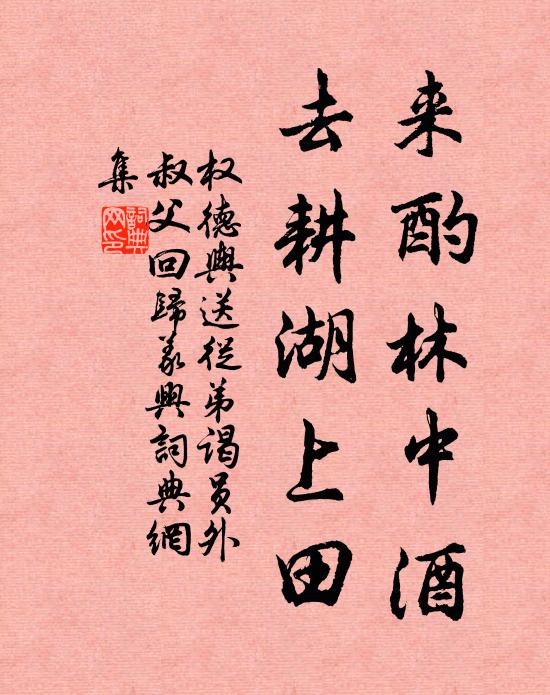 来酌林中酒
去耕湖上田
权德舆送従弟谒员外
叔父回歸義興詞典網
集
詞典
网印